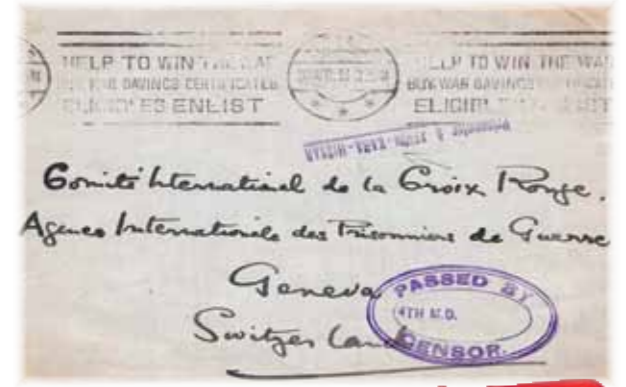 HELP TO WIN THE WAR
BUY WAR SAVINGS CERTIFICATES
ELIGIBLES ENLIST
HELP TO WIN THE WAR
BUY WAR SAVINGS
ELIGIBLES
Prisonnier à AFION-KARA-HISSAR
Comité International de la Croix Rouge.
Agence Internationale des Prisonniers de Guerre
Geneva
Switzerland
PASSED BY
4TH M.D.
CENSOR.